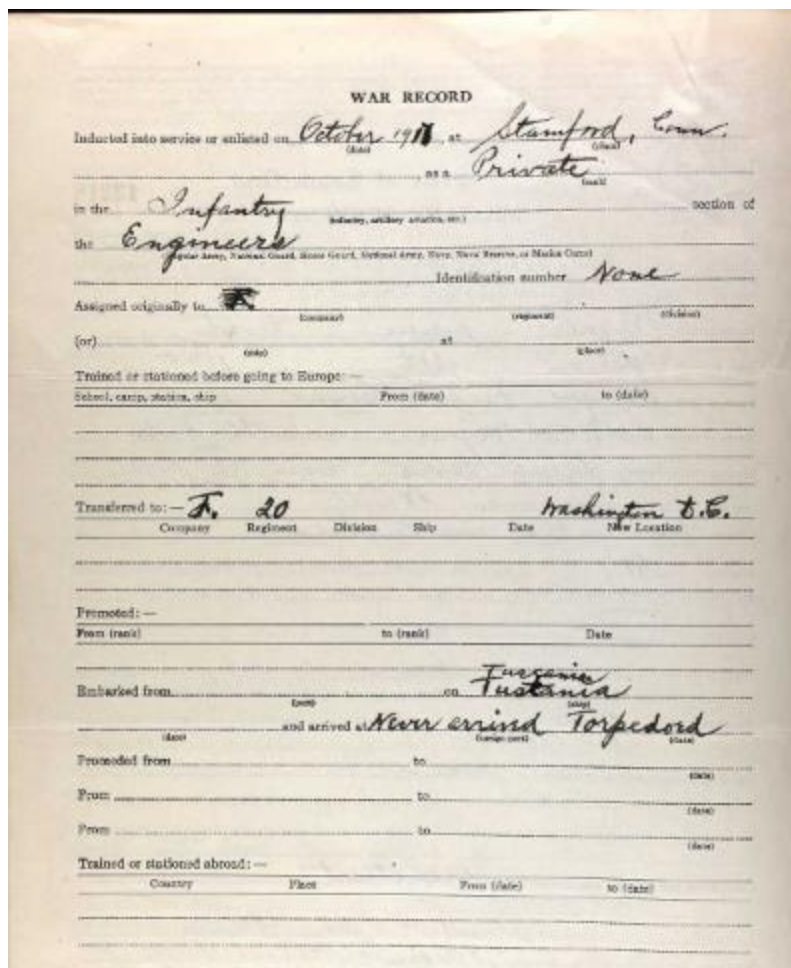 WAR RECORD
Inducted into service or enlisted on October 1917, at Stamford, Conn.
(date) (place)
as a Private
(rank)
in the Infantry section of
(infantry, artillery, aviation, etc.)
the Engineers
(Regular Army, National Guard, Home Guard, National Army, Navy, Naval Reserve, or Marine Corps)
Identification number None
Assigned originally to
(company) (regiment) (division)
(or) at
(ship) (place)
Trained or stationed before going to Europe: —
School, camp, station, ship From (date) to (date)
Transferred to: — F. 20 Washington D.C.
Company Regiment Division Ship Date New Location
Promoted: —
From (rank) to (rank) Date
Embarked from on Tustania
(port) (ship)
and arrived at Never arrind Torpedord
(date) (foreign port) (date)
Proceeded from to
(date)
From to
(date)
From to
(date)
Trained or stationed abroad: —
Country Place From (date) to (date)